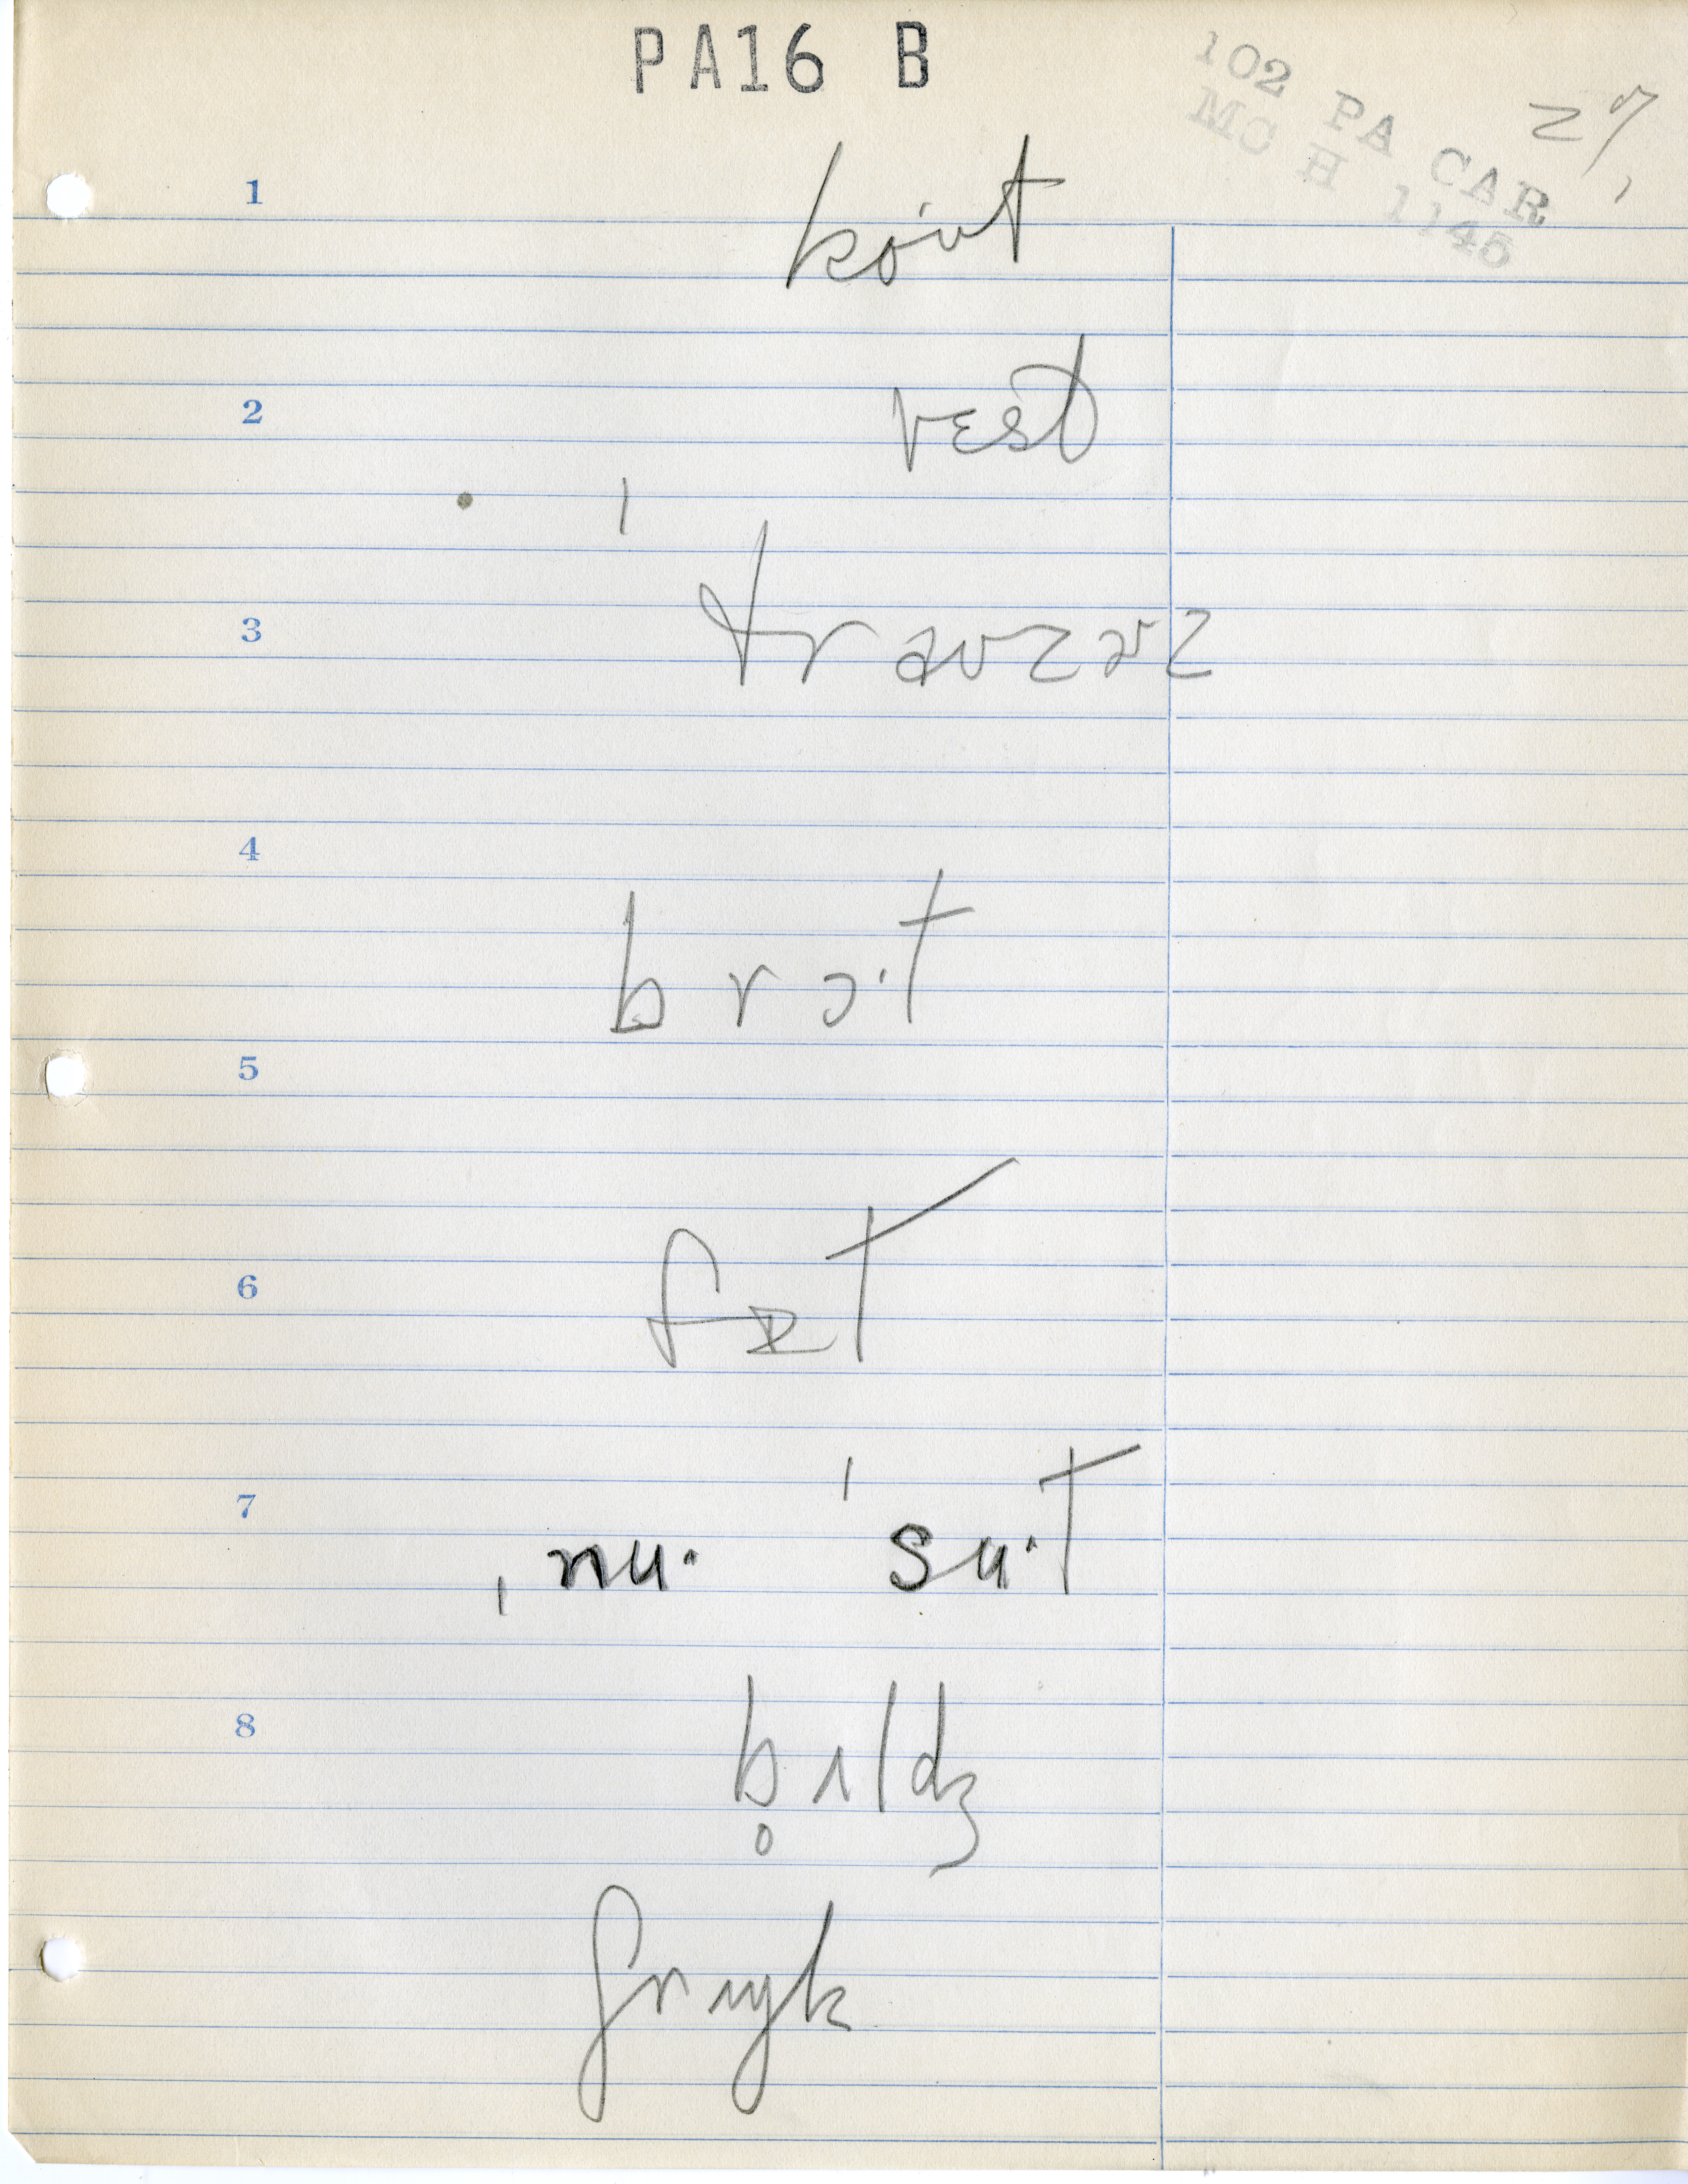 PA16 B
102 PA CAR 27,
MC H 1145
1
koˑʊt
2
vɛst
ˈtraʊzɚz
3
4
brɔˑt
5
6
fɪt
7
ˌnuˑ ˈsuˑt
8
b̥ʌldʒ